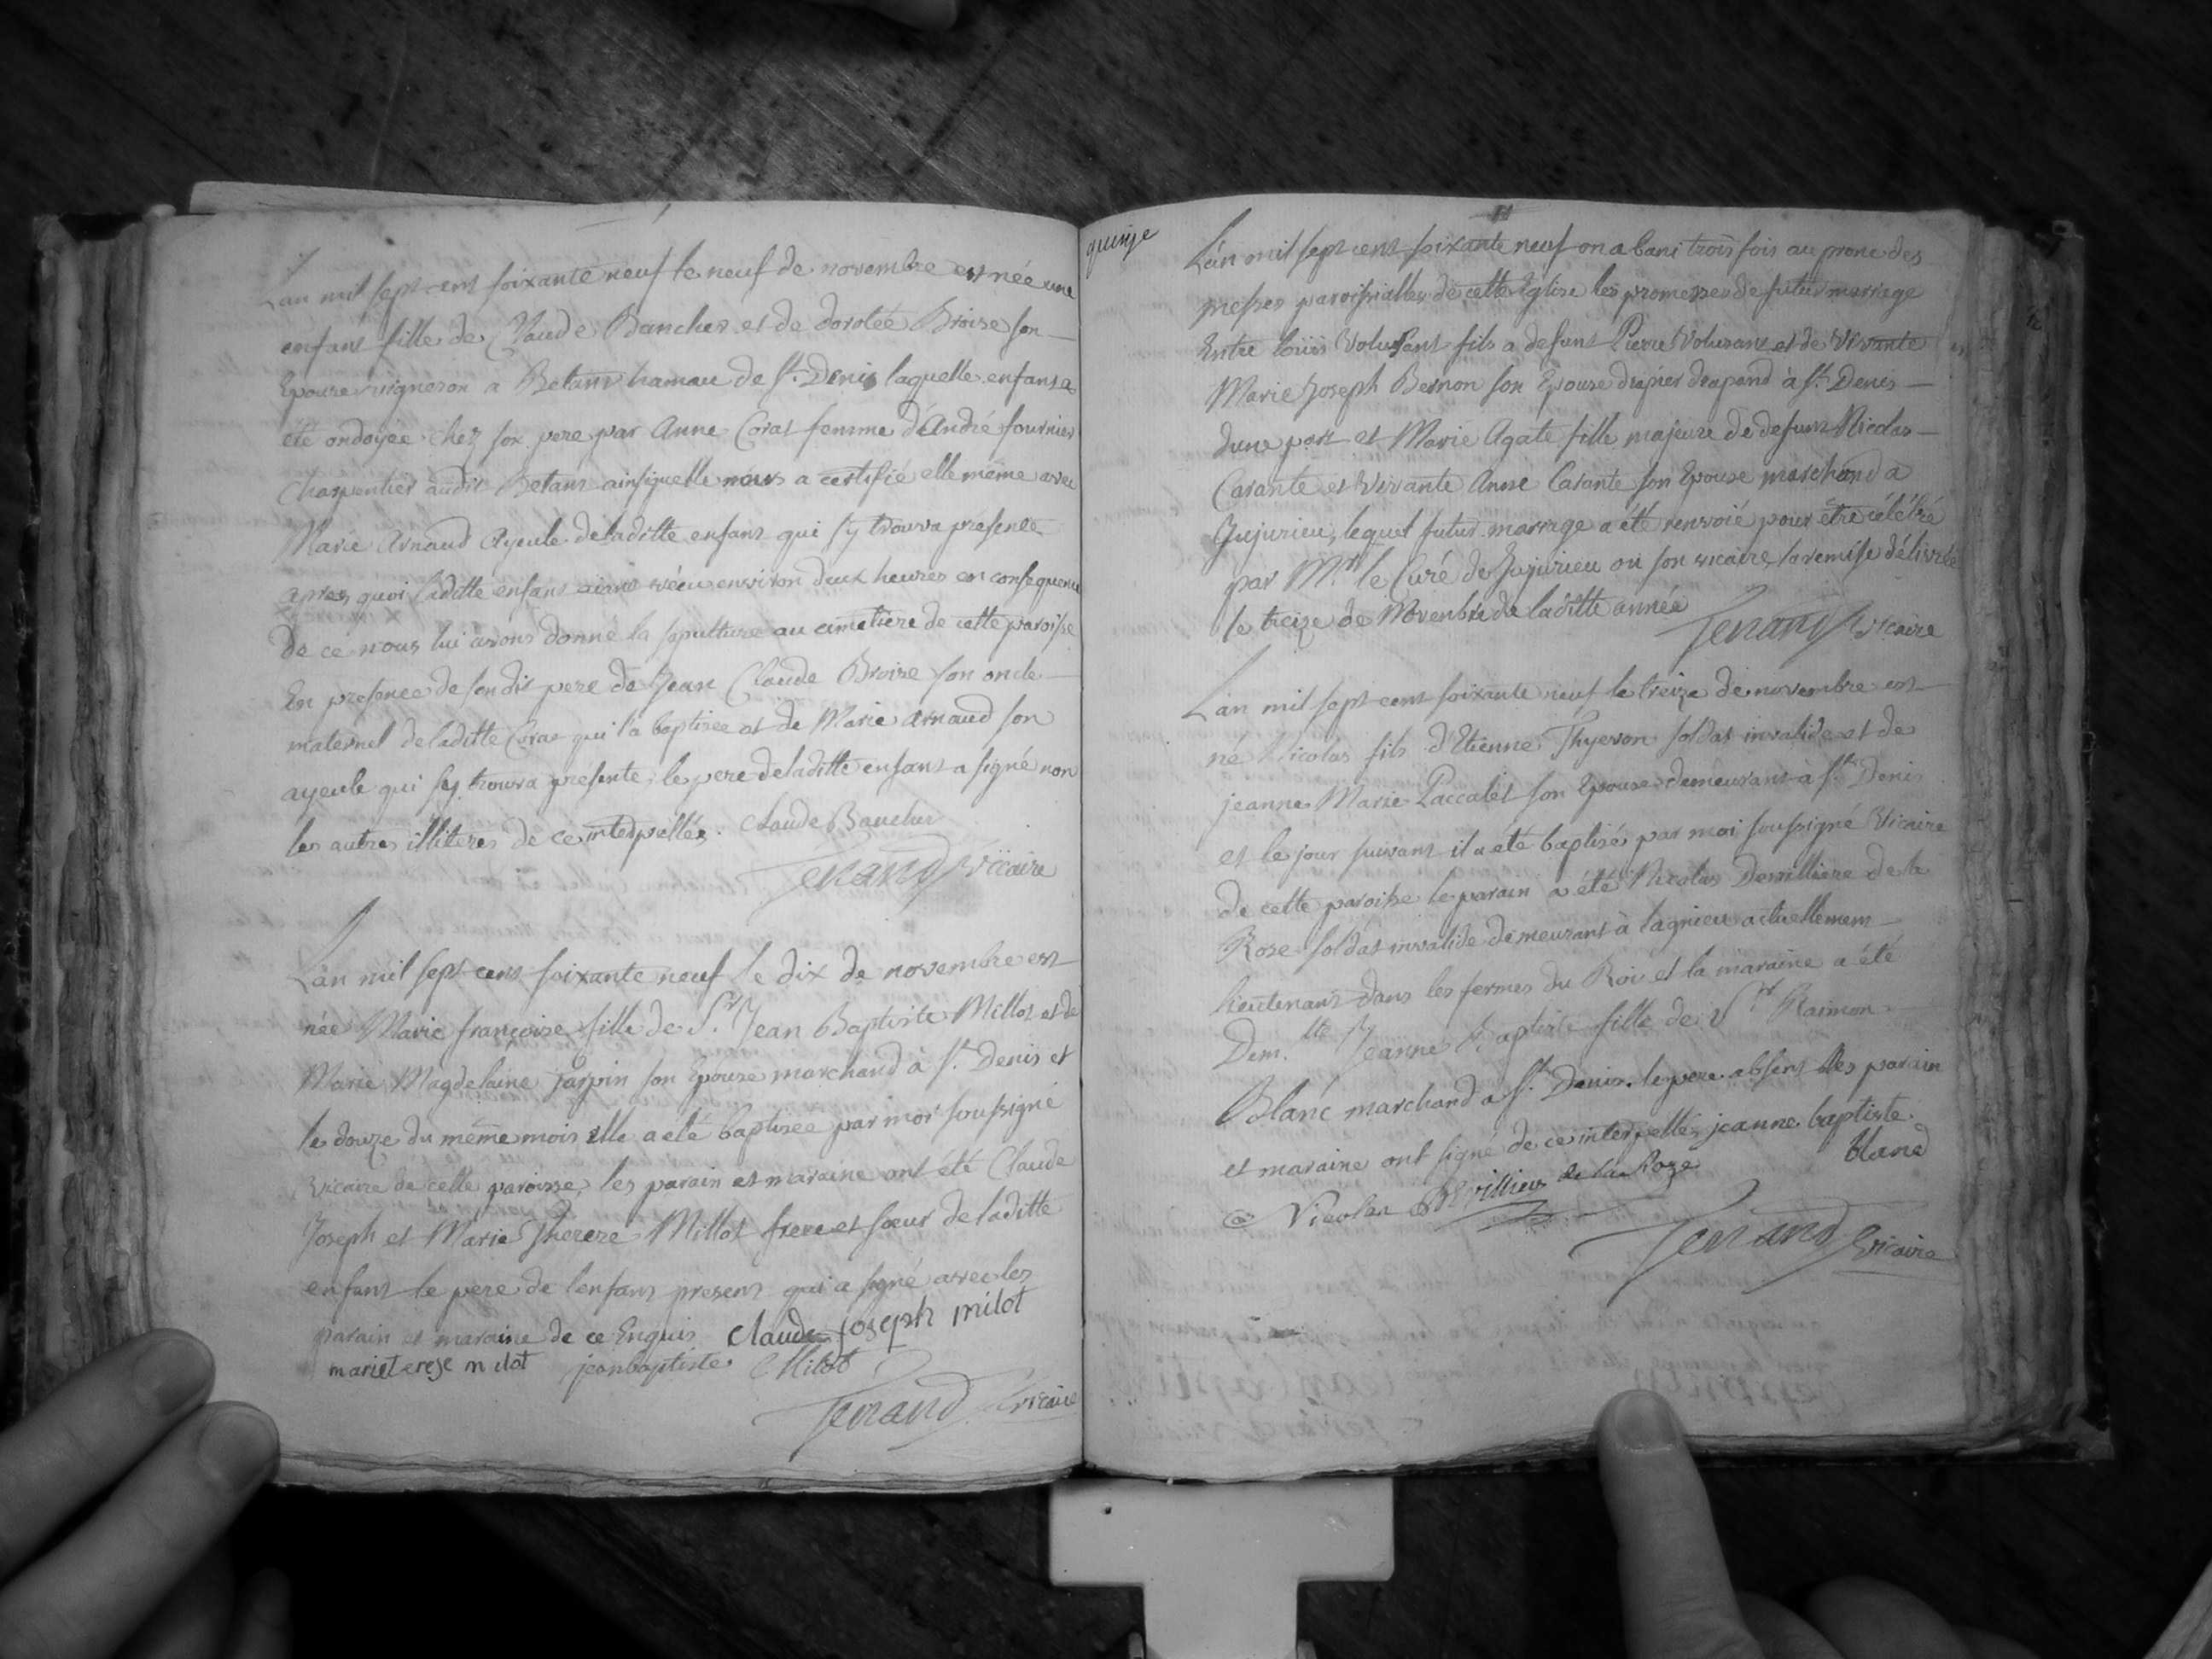 L'an mil sept cent soixante neuf le neuf de novembre est née une
enfant fille de Claude Bancher et de dorotée Broise son
Epouse vigneron a Betant hamau de St. Denis laquelle enfant a
été ondoyée chez son pere par Anne Coras femme d'André fournier
Charpentier audit Betant ainsiquelle nous a certifié elle même avec
Marie Arnaud Ayeule deladitte enfant qui s'y trouva présente
apres quoi laditte enfant aiant vécu environ deux heures en consequence
de ce nous lui avons donné la sepulture au cimetiere de cette paroisse
En presence de sondit pere de Jean Claude Broise son oncle
maternel deladitte Coras qui l'a baptisée et de Marie arnaud son
ayeule qui s'ej trouva presente, le pere deladitte enfant a signé non
les autres illiteres de ce interpellés. Claude Baucher
Tenand vicaire
L'an mil sept cent soixante neuf le dix de novembre est
née Marie françoise fille de Sr. Jean Baptiste Millot et de
Marie Magdelaine jaspin son Epouse marchand à St. Denis et
le douze du même mois elle a été baptisée par moi soussigné
Vicaire de cette paroisse, les parain et maraine ont été Claude
Joseph et Marie Therere Millot frere et sœur deladitte
enfant le pere de l'enfant present qui a signé avec les
parain et maraine de ce Enquis Claude joseph milot
marieterese milot jeanbaptiste Milot
Tenand vicaire
quinze
L'an mil sept cent soixante neuf on a bani trois fois au prone des
messes paroissialles de cette Eglise les promesses de futur mariage
Entre loüis Volusant fils a defunt Pierre Volusant et de vivante
Marie Joseph Bernon son Epouse drapier drapand à St. Denis
dune part et Marie Agate fille majeure de defunt Nicolas
Carante et vivante Anne Carante son Epouse marchand a
Jujurieu, lequel futur mariage a été renvoié pour être célébré
par Mr. le Curé de Jujurieu ou son vicaire, la remise délivrée
le treize de Novenbre de laditte année
Tenand vicaire
L'an mil sept cent soixante neuf le treize de novembre est
né Nicolas fils d'Etienne Thyevon soldat invalide et de
jeanne Marie Paccalet son Epouse demeurant à St. Denis
et le jour suivant il a été baptisé par moi soussigné Vicaire
de cette paroisse le parain a été Nicolas Devilliere de la
Rose soldat invalide demeurant à lagnieu actuellement
lieutenant dans les fermes du Roi et la maraine a été
Dem.lle Jeanne Baptiste fille de Sr. Raimon
Blanc marchand a St. Denis. le pere absent les parain
et maraine ont signé de ce interpellés jeanne baptiste
blanc
Nicolas Devilliers de la Roze
Tenand Vicaire